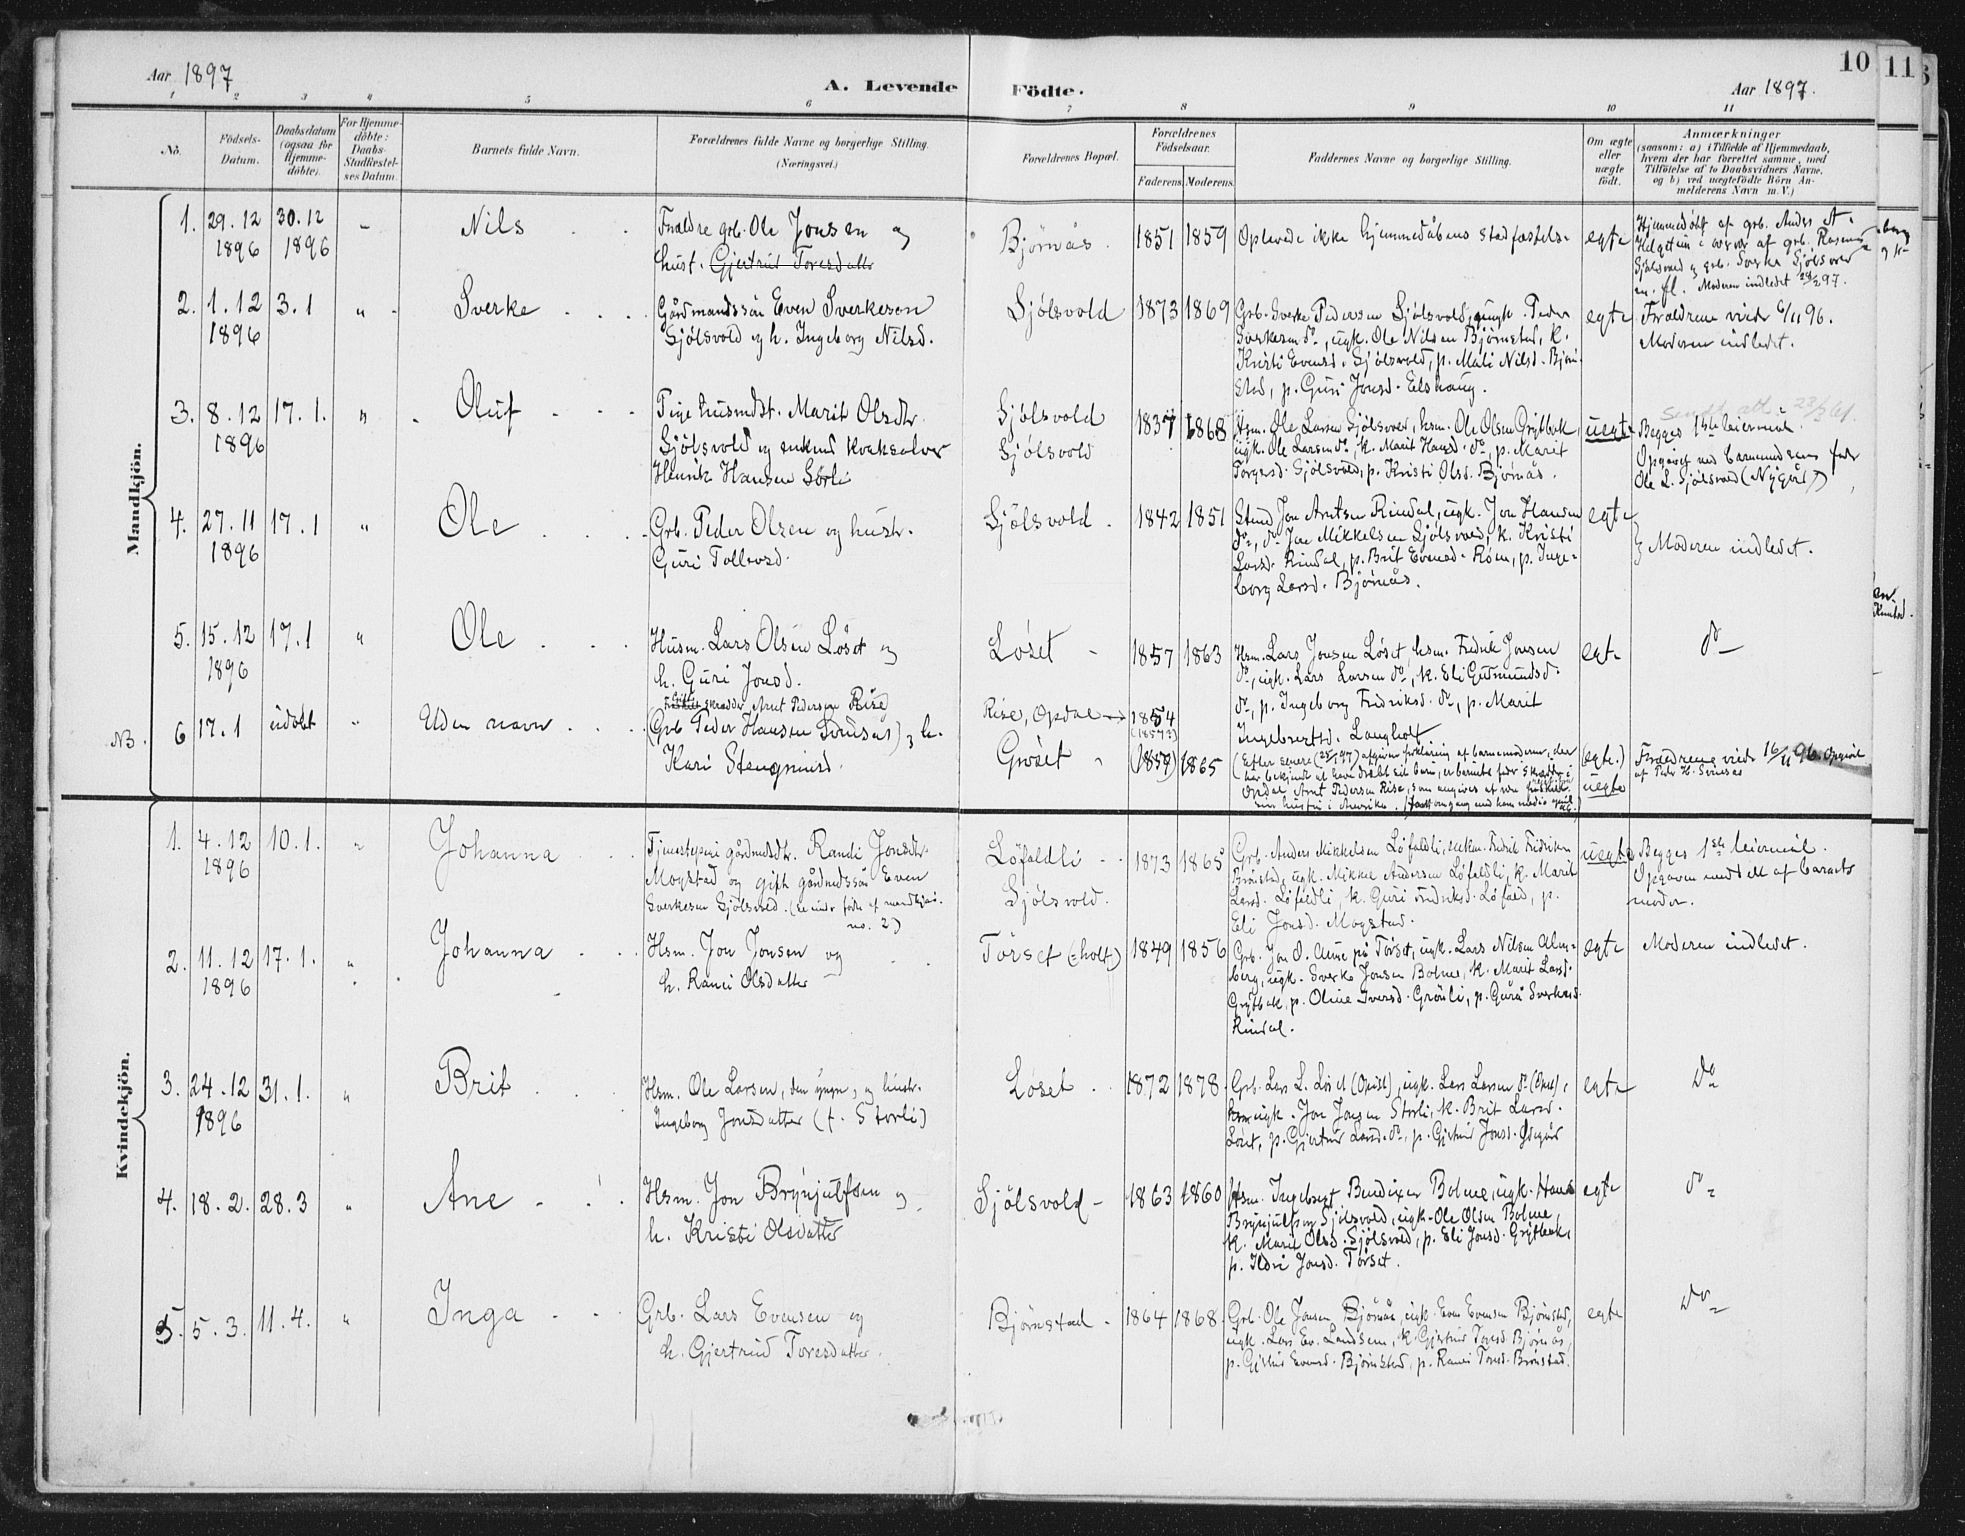 Aar 1897
A. Levende Födte.
Aar 1897.
10
11
1 2 3 4 5 6 7 8 9 10 11
No.
Födsels-
Datum.
Daabsdatum
(ogsaa for
Hjemme-
döbte).
For Hjemme-
döbte:
Daabs-
Stadfæstel-
ses Datum.
Barnets fulde Navn.
Forældrenes fulde Navne og borgerlige Stilling.
(Næringsvei.)
Forældrenes Bopæl.
Forældrenes
Födselsaar.
Faderens. Moderens.
Faddernes Navne og borgerlige Stilling.
Om ægte
eller
uægte
födt.
Anmærkninger
(saasom: a) i Tilfælde af Hjemmedaab,
hvem der har forrettet samme, med
Tilföielse af to Daabsvidners Navne,
og b) ved uægtefödte Börn An-
melderens Navn m. V.)
Mandkjön.
1. 29.12 1896 30.12 1896 Nils
Forældre grb. Ole Jonsen og
hust. Gjertrud Toresdatter
Bjørnås. 1851 1859
Oplevede ikke hjemmedåbens stadfæstelse
egte
Hjemmedøbt af grb. Anders A.
Helgetun i overvær af grb. Rasmus
Moderen indledet 28/2 97.
2. 1.12 1896 3.1 " Sverke
Gårdmandssøn Even Sverkesen
Sjølsvold og h. Ingeborg Nilsd.
Sjølsvold 1873 1869
Grb. Sverke Pedersen Sjølsvold, ugk. Peder
Sverkesen do, ugk. Ole Nilsen Bjørnstad, k.
Kristi Evensd. Sjølsvold, p. Mali Nilsd. Bjørn-
stad, p. Guri Jonsd. Elshaug.
egte
Forældrene viede 6/11 96.
Moderen indledet.
3. 8.12 1896 17.1. " Oluf
Pige husmdst. Marit Olsdtr.
Sjölsvold og enkemd kvaksalver
Henrik Hansen Sörli
Sjølsvold
Sjølsvold
1837 1868
Hsm. Ole Larsen Sjølsvold, hsm. Ole Olsen Grytbak,
ugk. Ole Larsen do, k. Marit Hansd. do, p. Marit
Torgersd. Sjølsvold, p. Kristi Olsd. Bjørnås.
uegte
Begges 1ste leiermål.
Opgivet ved barnemoderens fader
Ole L. Sjølsvold (Nygård)
4. 27.11 1896 17.1 " Ole
Grb. Peder Olsen og hustr.
Guri Tollevsd.
Sjølsvold. 1842 1851
Jon Arntsen Rindal, ugk. Jon Hansen
do, do Jon Mikkelsen Sjølsvold, k. Kristi
Larsd. Rindal, p. Brit Evensd. Røen, p. Inge-
borg Larsd. Bjørnås.
egte
Moderen indledet.
5. 15.12 1896 17.1 " Ole
Husm. Lars Olsen Løset og
h. Guri Jonsd.
Løset 1857 1863
Hsm. Lars Jonsen Løset, hsm. Fredrik Jonsen
do, ugk. Lars Larsen do, k. Eli Gudmundsd.
do, p. Ingeborg Fredriksd. do, p. Marit
Ingebrertsd. Langholt
egte do
NB. 6 17.1 udøbt " Uden navn
Gift skrædder Arnt Pedersen Rise
(Grb Peder Hansen Grinsås) og h.
Kari Stengrimsd.
Rise, Opdal 1854
(1857?)
Grøset (1859) 1865
(Efter senere (25/1 97) afgiven forklaring af barnemoderen, der
har bekjendt at have dræbt sit barn, er barnets fader skrædder i
Opdal Arnt Pedersen Rise, som angives at
(egte.)
uegte
Forældrene viede 16/11 96. Opgivet
Kvindekjön.
1. 4.12 1896 10.1. " Johanna
Tjenestepige gårdmdsdtr. Randi Jonsdtr.
Mogstad og gift gårdmdssøn Even
Sverkesen Sjølsvold. (Se under fødte af mandkjøn.
no. 2)
Löfaldli
Sjølsvold.
1873 1865
Grb. Anders Mikkelsen Löfaldli, Fredrik Fredriksen
Brønstad, ugk. Mikkel Andersen Löfaldli, k. Marit
Larsd. Löfaldli, k. Guri Fredriksd. Löfald, p.
Eli Jonsd. Mogstad.
uegte
Begges 1ste leiermål.
Opgaven meddelt af barnets
moder.
2. 11.12 1896 17.1. " Johanna
Hsm. Jon Jonsen og
h. Randi Olsdatter
Tørset (=holt) 1849 1856
Grb. Jon O. Aune på Tørset, ugk. Lars Nilsen Alm-
berg, ugk. Sverke Jonsen Bolme, k. Marit Larsd.
Grytbak, p. Oline Iversd. Grönli, p. Gurå Sverkesd.
Rindal.
egte Moderen indledet.
3. 24.12 1896 31.1. " Brit
Hsm. Ole Larsen, den yngre, og hustr.
Ingeborg Jonsdatter (f. Storli)
Løset 1872 1878
Grb. Lars L. Løset, ugk. Lars Larsen do,
ugk. Jon Jonsen Storli, k. Brit Larsd.
Løset, p. Gjertrud Larsd. do, p. Gjertrud Jonsd.
egte Do
4. 18.2. 28.3 " Ane
Hsm. Jon Brynjulfsen og
h. Kristi Olsdatter
Sjølsvold 1863 1860
Hsm. Ingebregt Bendixen Bolme, ugk. Hans
Brynjulfsen Sjølsvold, ugk. Ole Olsen Bolme,
k. Marit Olsd. Sjølsvold, p. Eli Jonsd. Grytbak,
p. Ildri Jonsd. Tørset.
egte do
5. 5.3. 11.4. " Inga
Grb. Lars Evensen og
h. Gjertrud Toresdatter.
Bjørnstad 1864 1868
Grb. Ole Jonsen Bjørnås, ugk. Even Evensen Bjørnstad,
ugk. Lars Ev. Landsem, k. Gjertrud Toresd. Bjørnås,
p. Gjertrud Evensd. Bjørnstad, p. Randi Toresd. Brønstad.
egte Do